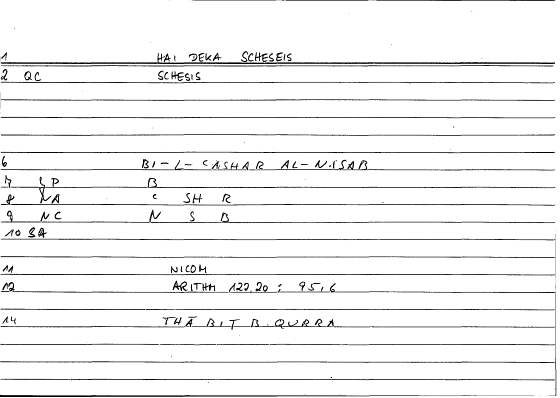 1 HAI DEKA SCHESEIS
2 QC SCHESIS
6 BI-L-CASHAR AL-NISAB
7 SP B
8 NA C SH R
9 NC N S B
10 SA
11 NICOM
12 ARITHM 122,20 : 95,6
14 THĀBIT B. QURRA